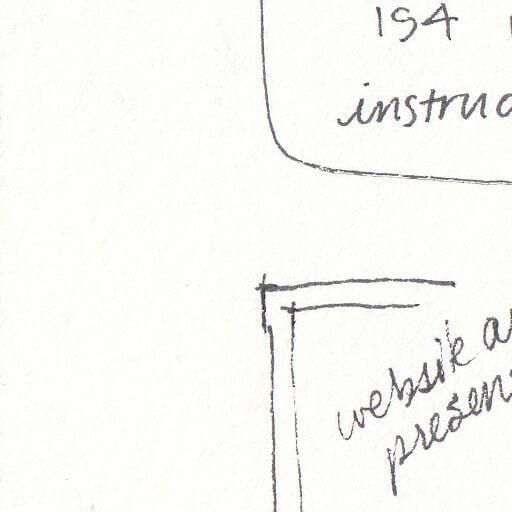 154
instruc
website a
presen